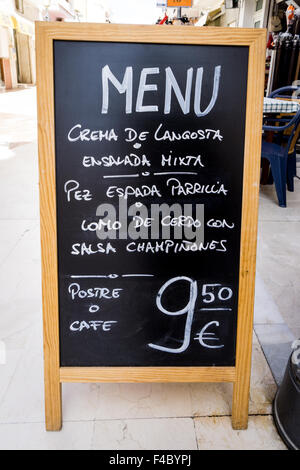 MENU
CREMA DE LANGOSTA
o
ENSALADA MIXTA
PEZ ESPADA PARRILLA
o
LOMO DE CERDO CON
SALSA CHAMPIÑONES
o
POSTRE
o
CAFE
9.50
€
alamy
Image ID: F4BYPJ
www.alamy.com